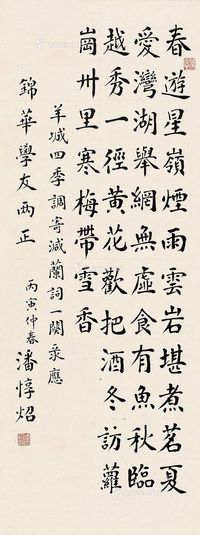 春遊星嶺煙雨雲岩堪煮茗夏
愛灣湖舉網無虛食有魚秋臨
越秀一徑黃花歡把酒冬訪蘿
崗卅里寒梅帶雪香
羊城四季調寄減蘭詞一闋彔應
錦華學友两正
丙寅仲春潘惇炤